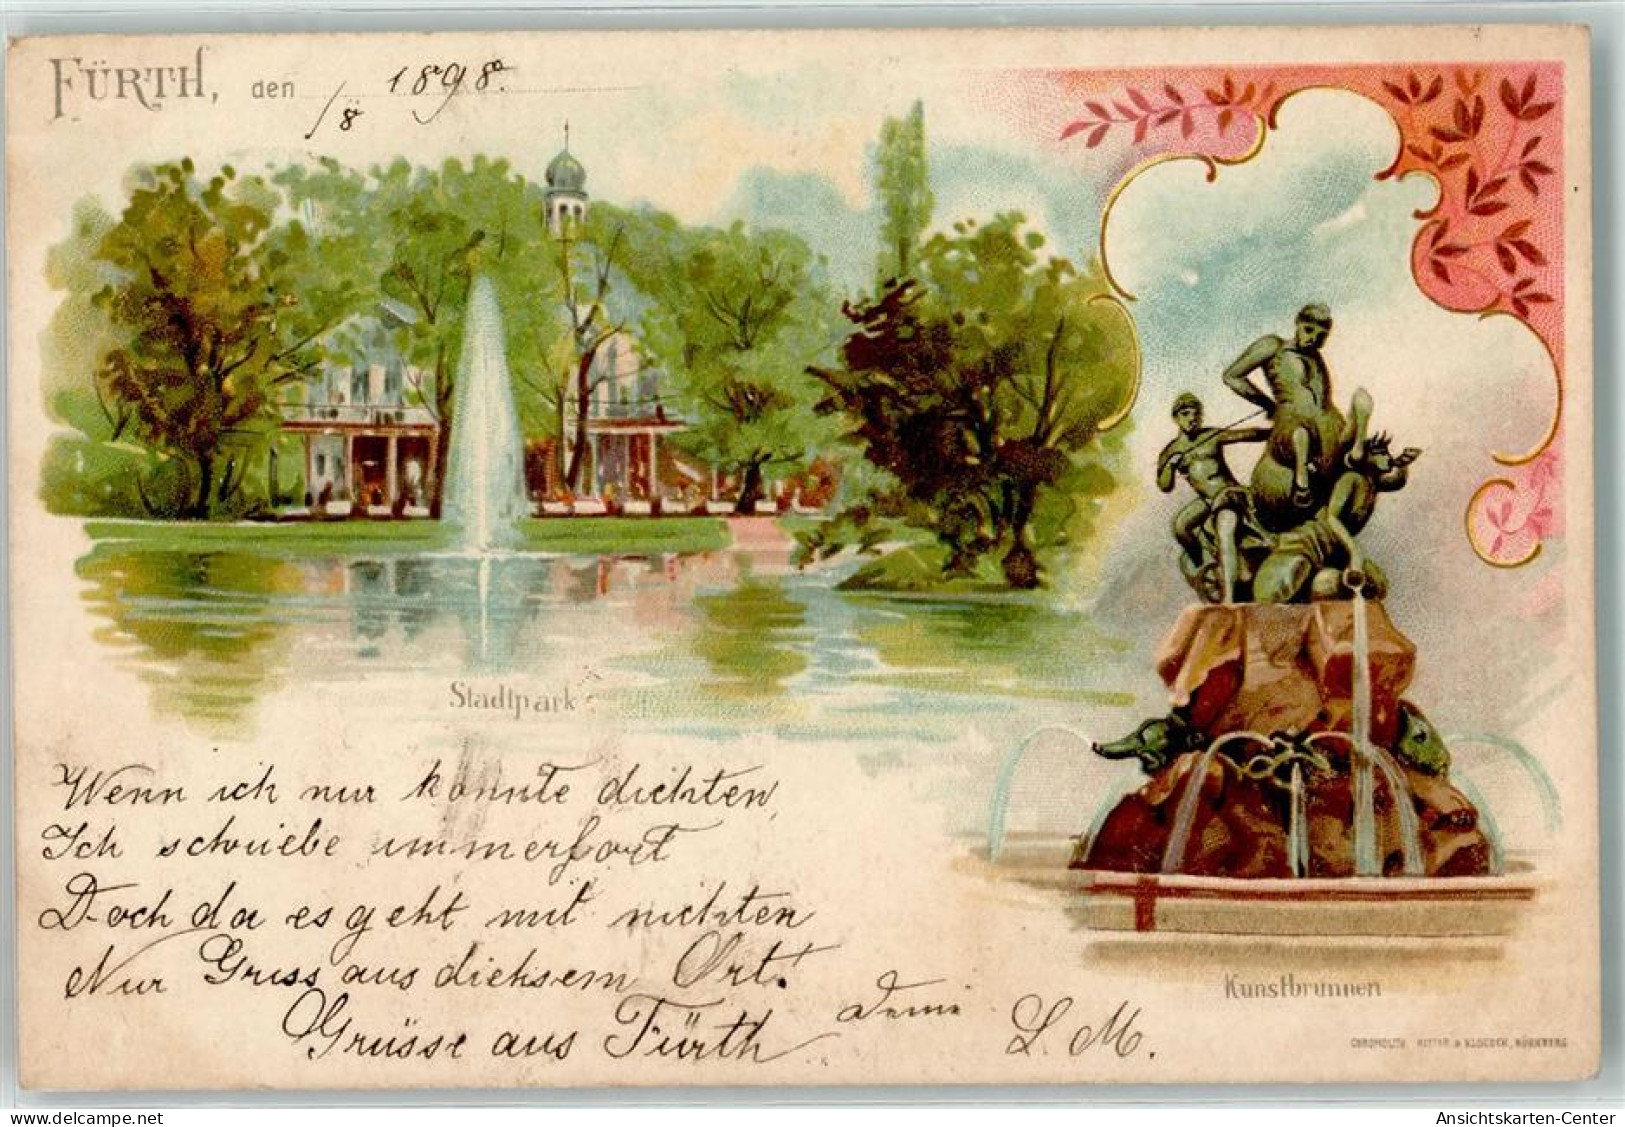 FÜRTH, den 1/8 1898.
Stadtpark
Wenn ich nur könnte dichten,
Ich schriebe immerfort
Doch da es geht mit nichten
Nur Gruss aus dieksem Ort!
Grüsse aus Fürth
L. M.
Kunstbrunnen
CHROMOLITH. RITTER & KLOEDEN, NÜRNBERG
Ansichtskarten-Center